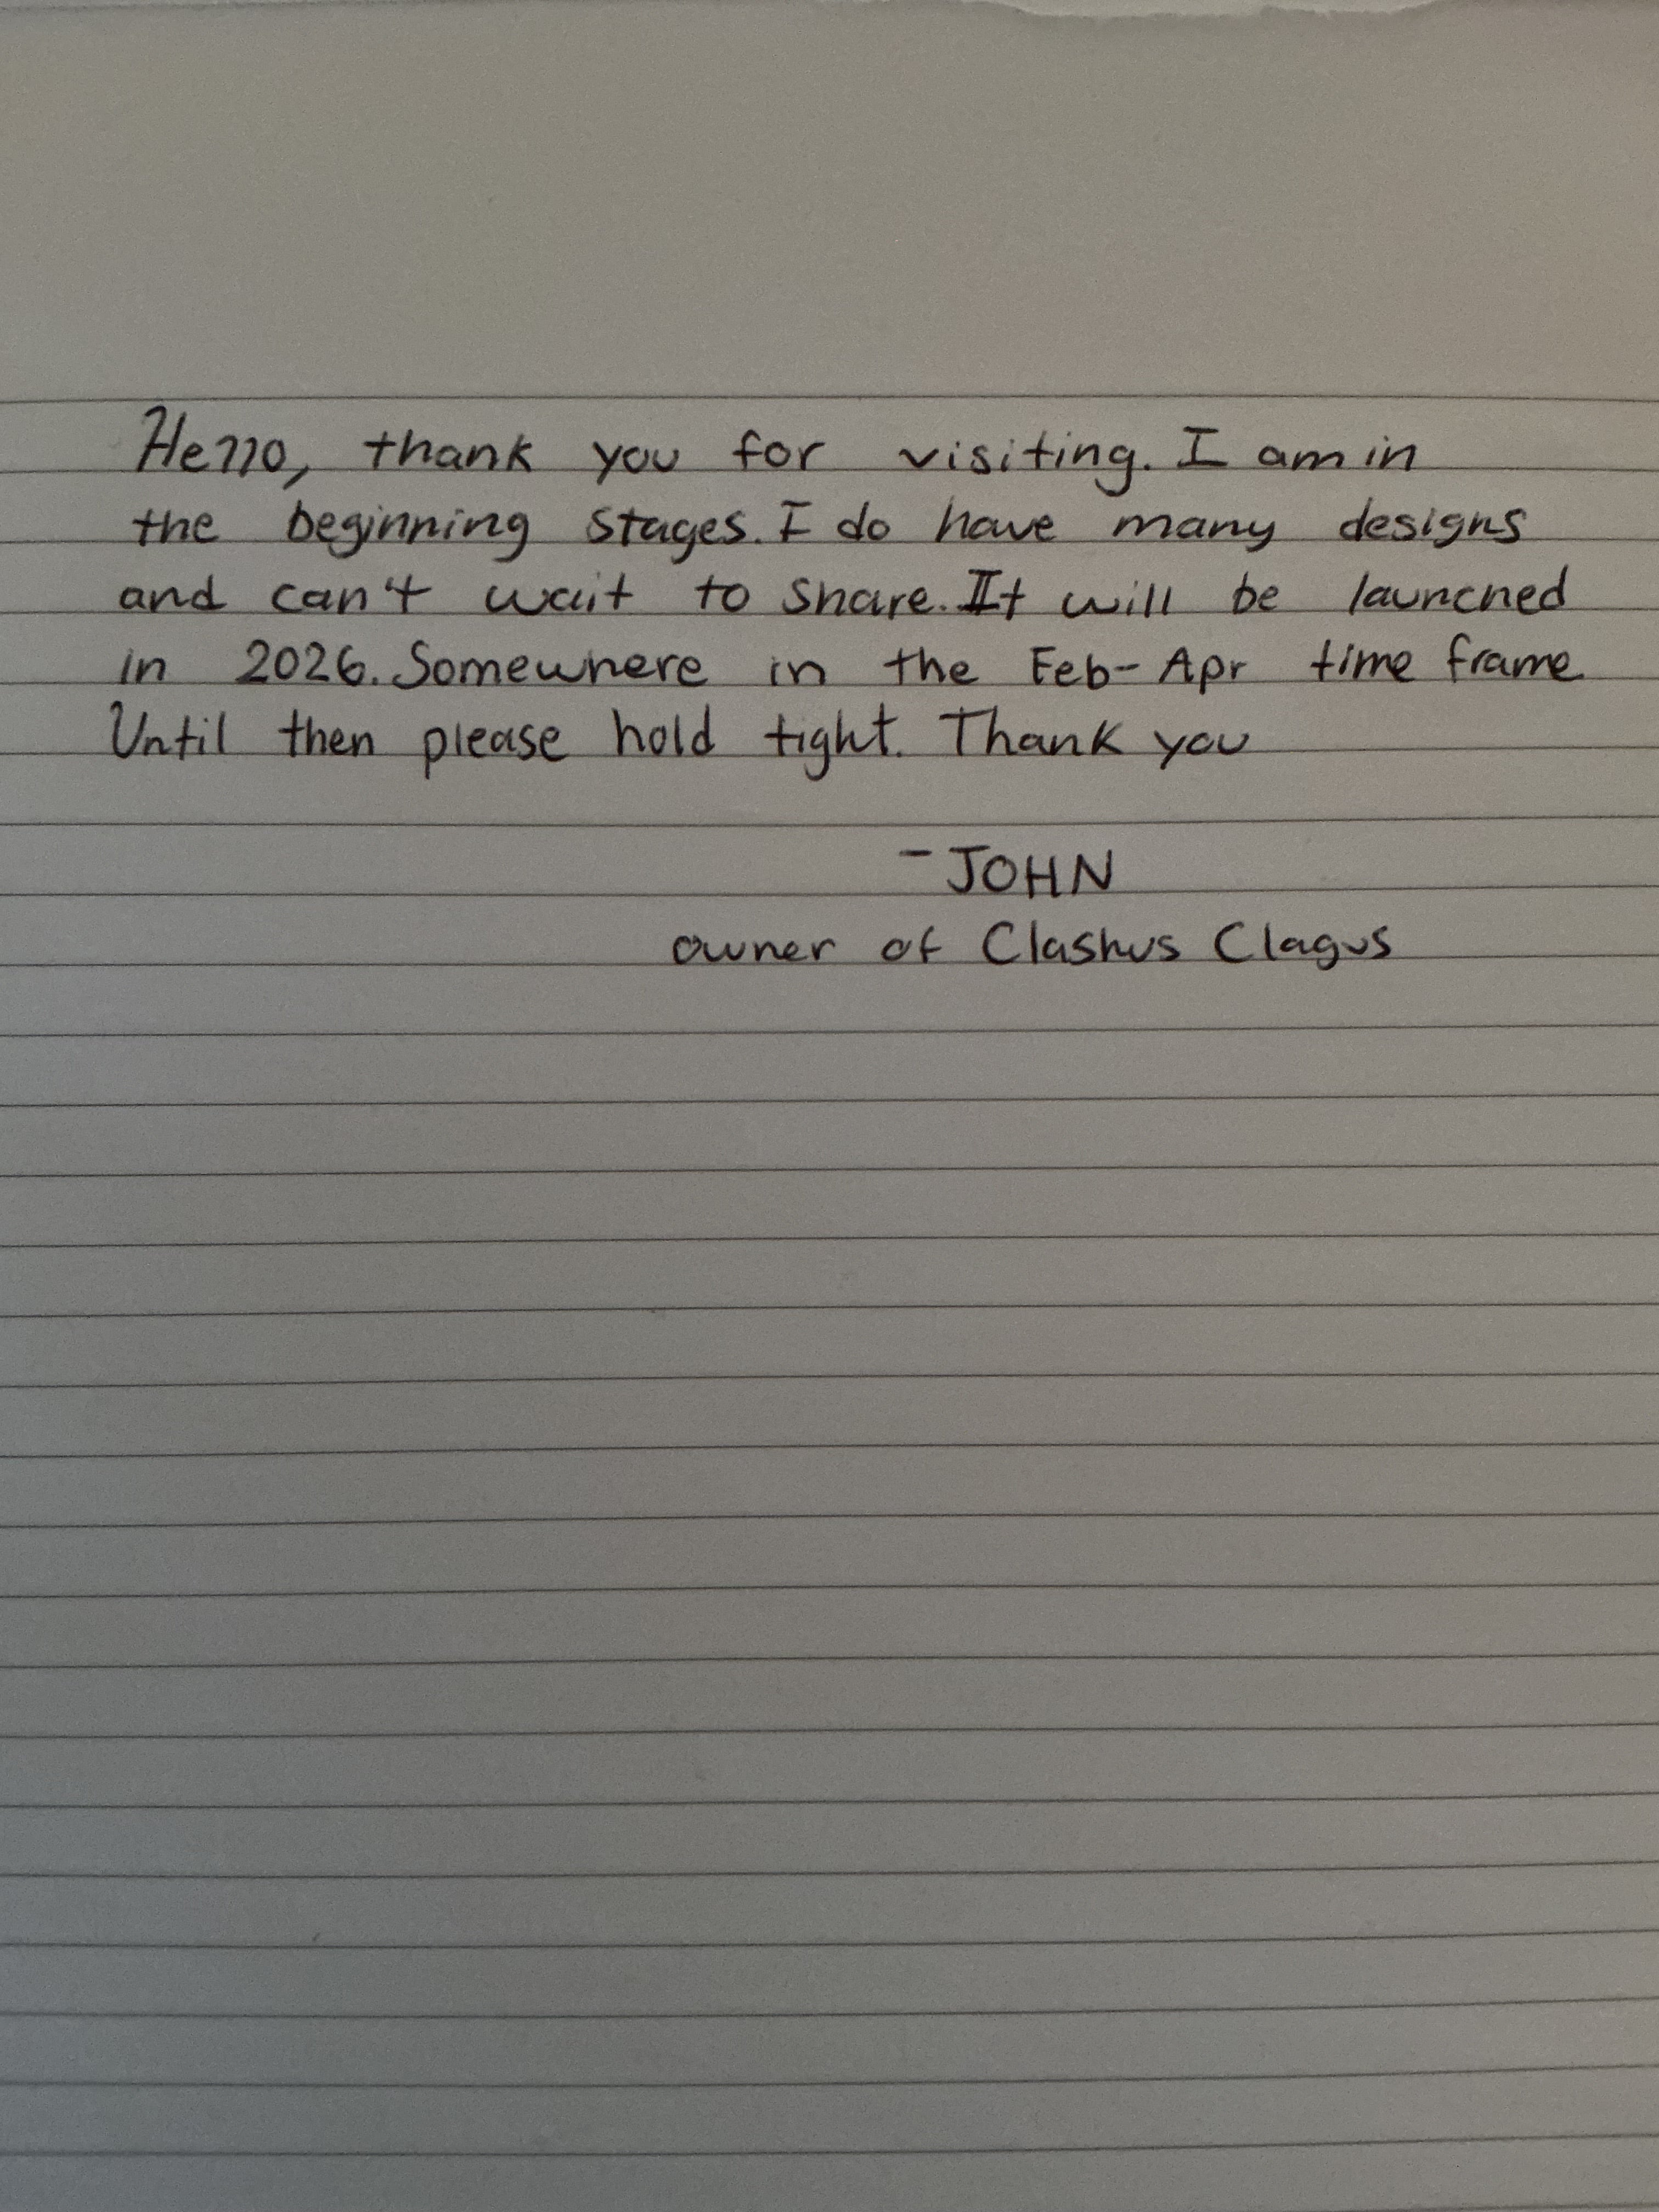 Hello, thank you for visiting. I am in
the beginning stages. I do have many designs
and can't wait to share. It will be launched
in 2026. Somewhere in the Feb-Apr time frame.
Until then please hold tight. Thank you
-JOHN
owner of Clashus Clagus